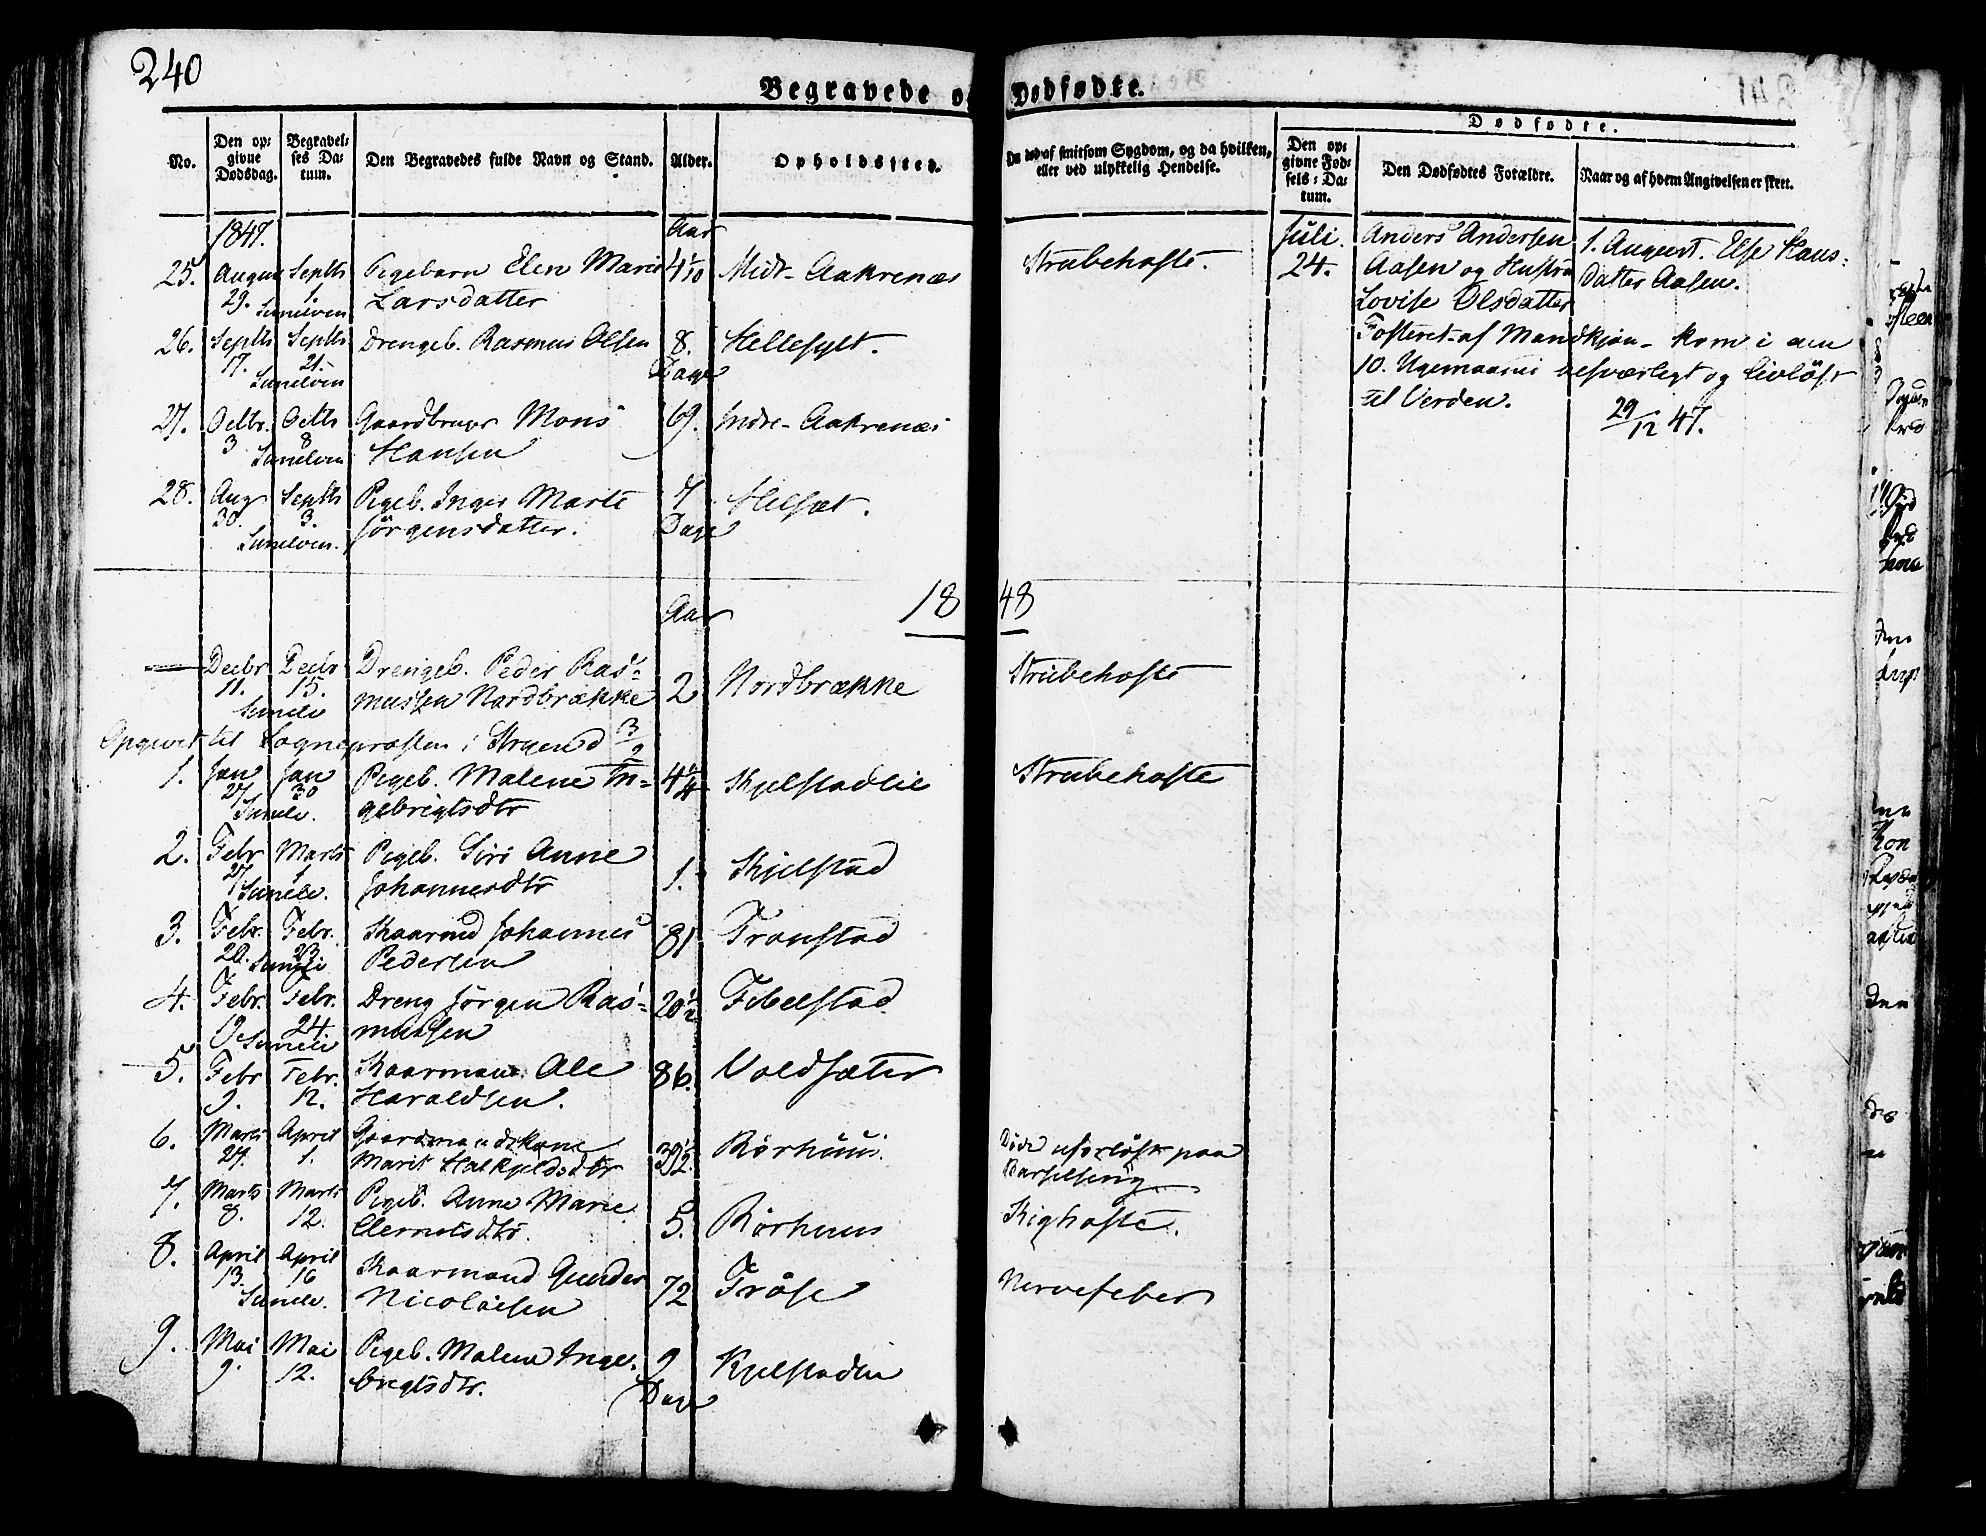 240
Begravede og Dødfødte.
No.
Den op-
givne
Dødsdag.
Begravel-
ses Da-
tum.
Den Begravedes fulde Navn og Stand.
Alder.
Opholdssted.
eller ved ulykkelig Hendelse.
Dødfødte.
Den op-
givne Fød-
sels-Da-
tum.
Den Dødfødtes Forældre.
Naar og af hvem Angivelsen er skeet.
1847.
Aar
25. August Septbr Pigebarn Elen Marie 4 1/10 Midt-Aakrenæs Strubehoste.
29. 1. Larsdatter
Sunelven
26. Septbr Septbr Drengeb. Rasmus Olsen 8. Hellesylt.
17. 21. Dage
Sunelven
27. Octbr. Octbr Gaardbruger Mons 69. Indre-Aakrenæs
3 8 Hansen
Sunelven
28. Aug Septbr Pigeb. Inger Marte 7 Helsæt.
30. 3. Jørgensdatter. Dage
Sunelven.
Juli. Anders Andersen 1. August. Else Hans-
24. Aasen og Hustru Datter Aasen.
Lovise Olsdatter
Fosteret af Mandkjøn - kom i den
10. besværligt og livløst
til Verden. 29/12 47.
1848
Aar
Decbr Decbr Drengeb. Peder Ras- 2 Nordbrække Strubehoste
11. 15. mussen Nordbrække
Sunelv
Opgivet til Sognepræsten i Stryen d 3/2
1. Jan Jan Pigeb. Malene In- 4 1/4 Skjelstadlie Strubehoste
27 30 gebrigtsdtr
Sunelv.
2. Febr Marts Pigeb. Siri Anne 1. Skjelstad
27 1 Johannesdtr
Sunelv.
3. Febr. Febr. Kaarmd Johannes 81 Tronstad
20. 23 Pedersen
Sunelv
4. Febr. Febr. Dreng Jørgen Ras- 20 1/2 Fibelstad
19 24. mussen
Sunelv
5. Febr Febr. Kaarmand. Ole 86. Voldsæter
9. 12. Haraldsen.
6. Marts April Gaardmandskone 39 1/2. Rørhuus. Døde uforløst paa
27. 1. Marit Halkjeldsdtr Barselseng
7. Marts Marts Pigeb. Anne Marie 5. Rørhuus Kighoste.
8. 12. Clemetsdtr.
8. April April Kaarmand Gunder 72 Trøse Nervefeber
13. 16 Nicolaisen
Sunelv.
9. Mai Mai Pigeb. Malene Inge- 9 Kjelstadlie
9. 12. brigtsdtr. Dage